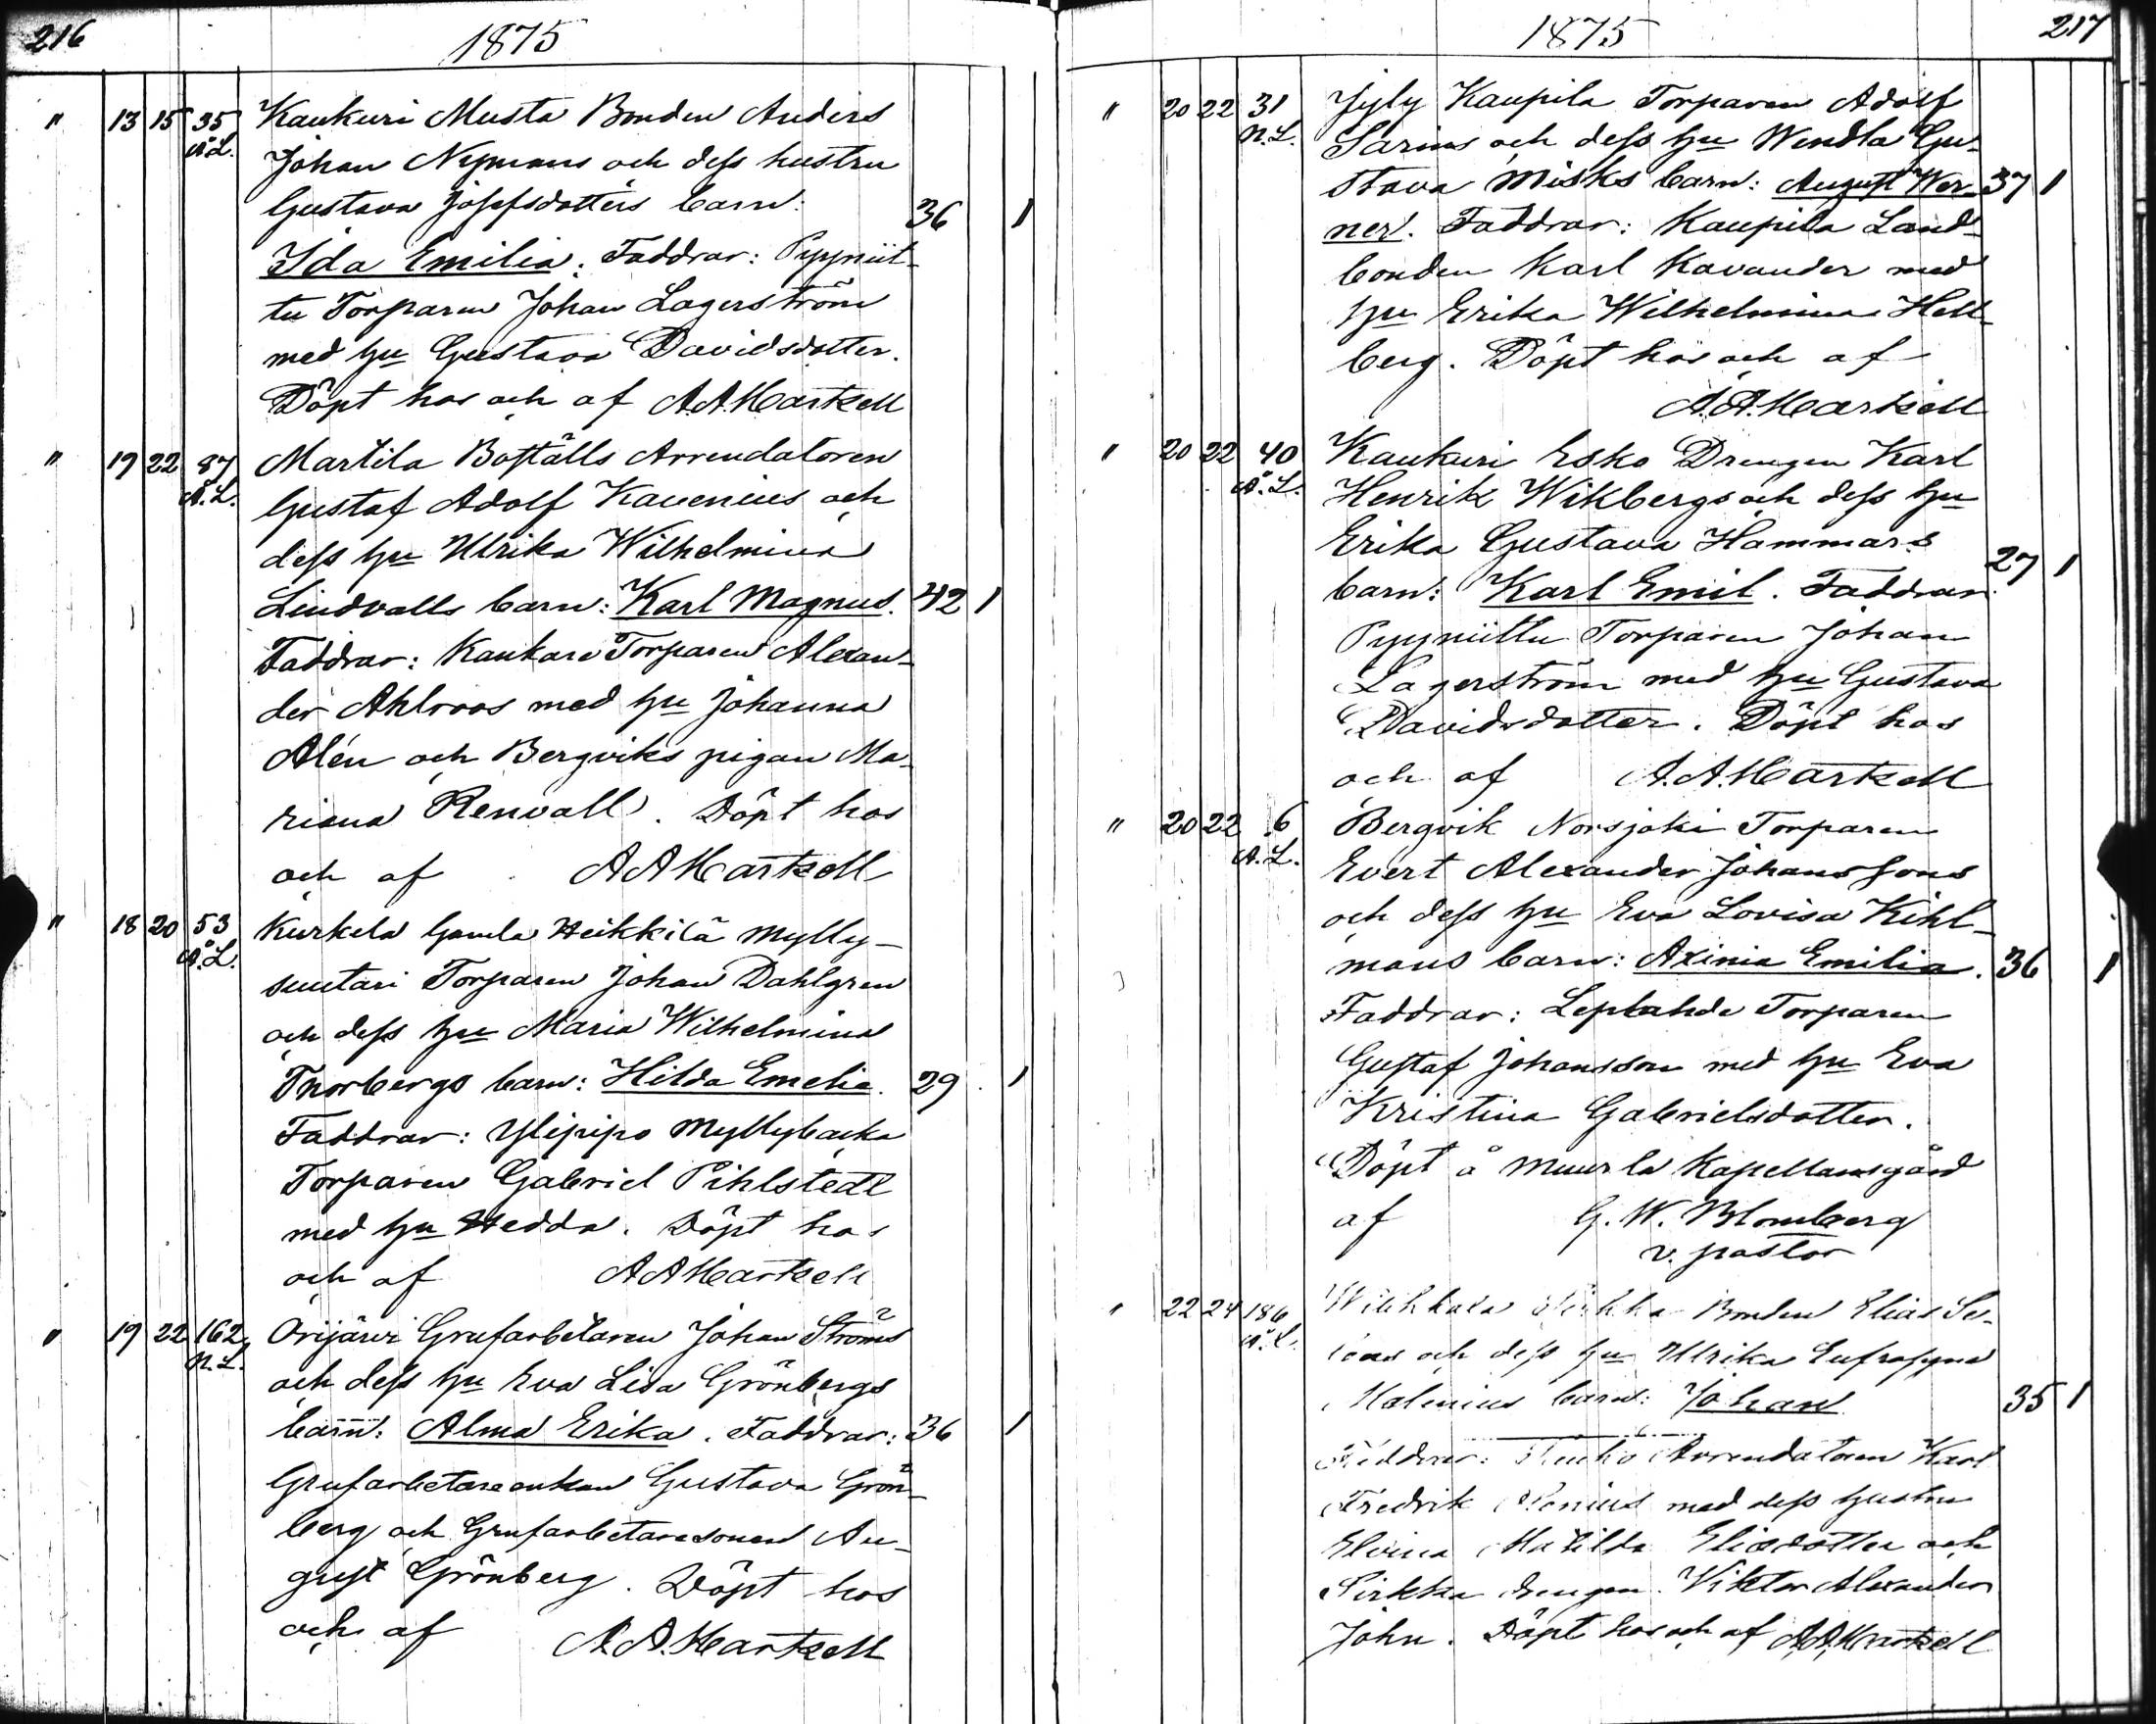 216
1875
" 13 15 35 Kaukuri Musta Bonden Anders
Å.L. Johan Nymans och dess hustru
Gustava Josefsdotters barn: 36 1
Ida Emilia. Faddrar: Pyyniit-
tu Torparen Johan Lagerström
med hu Gustava Davidsdotter.
Döpt hos och af A.A.Hartzell
" 19 22 87 Martila Boställs Arrendatoren
Å.L. Gustaf Adolf Kavenius och
dess hu Ulrika Wilhelmina
Lindvalls barn: Karl Magnus. 42 1
Faddrar: Kankare Torparen Alexan-
der Ahlroos med hu Johanna
Alén och Bergviks pigan Ma-
riana Renvall. Döpt hos
och af A A Hartzell
" 18 20 53 Kurkela Gamla Heikkilä Mylly-
Å.L. suutari Torparen Johan Dahlgren
och dess hu Maria Wilhelmina
Thorbergs barn: Hilda Emelia. 29 1
Faddrar: Ylipipo Myllybacka
Torparen Gabriel Pihlstedt
med hu Hedda. Döpt hos
och af A A Hartzell
" 19 22 162 Orijärvi Grufarbetaren Johan Ströms
N.L. och dess hu Eva Lisa Grönbergs
barn: Alma Erika. Faddrar: 36 1
Grufarbetareenkan Gustava Grön-
berg och Grufarbetaresonen Au-
gust Grönberg. Döpt hos
och af A.A.Hartzell
1875
217
" 20 22 31 Jyly Kaupila Torparen Adolf
N.L. Sarins och dess hu Wendla Gu-
stava Misks barn: August Wer- 37 1
ner. Faddrar: Kaupila Land-
bonden Karl Kavander med
hu Erika Wilhelmina Hell-
berg. Döpt hos och af
A.A.Hartzell
" 20 22 40 Kaukuri Esko Drengen Karl
Å.L. Henrik Wikbergs och dess hu
Erika Gustava Hammars 27 1
barn: Karl Emil. Faddrar:
Pyyniittu Torparen Johan
Lagerström med hu Gustava
Davidsdotter. Döpt hos
och af A.A.Hartzell
" 20 22 6 Bergvik Norsjoki Torparen
Å.L. Evert Alexander Johanssons
och dess hu Eva Lovisa Kihl-
mans barn: Axinia Emilia. 36 1
Faddrar: Leplahde Torparen
Gustaf Johansson med hu Eva
Kristina Gabrielsdotter.
Döpt å Muurla Kapellansgård
af G. W. Blomberg
v. pastor
" 22 24 186 Bonden Elias
Å.L. och dess hu Ulrika Eufrosyna
barn: Johan 35 1
Faddrar: Arrendatoren Karl
Fredrik med dess hustru
Elvira Matilda Eliasdotter och
Sirkka drengen Viktor Alexander
John. Döpt hos och af A.A.Hartzell